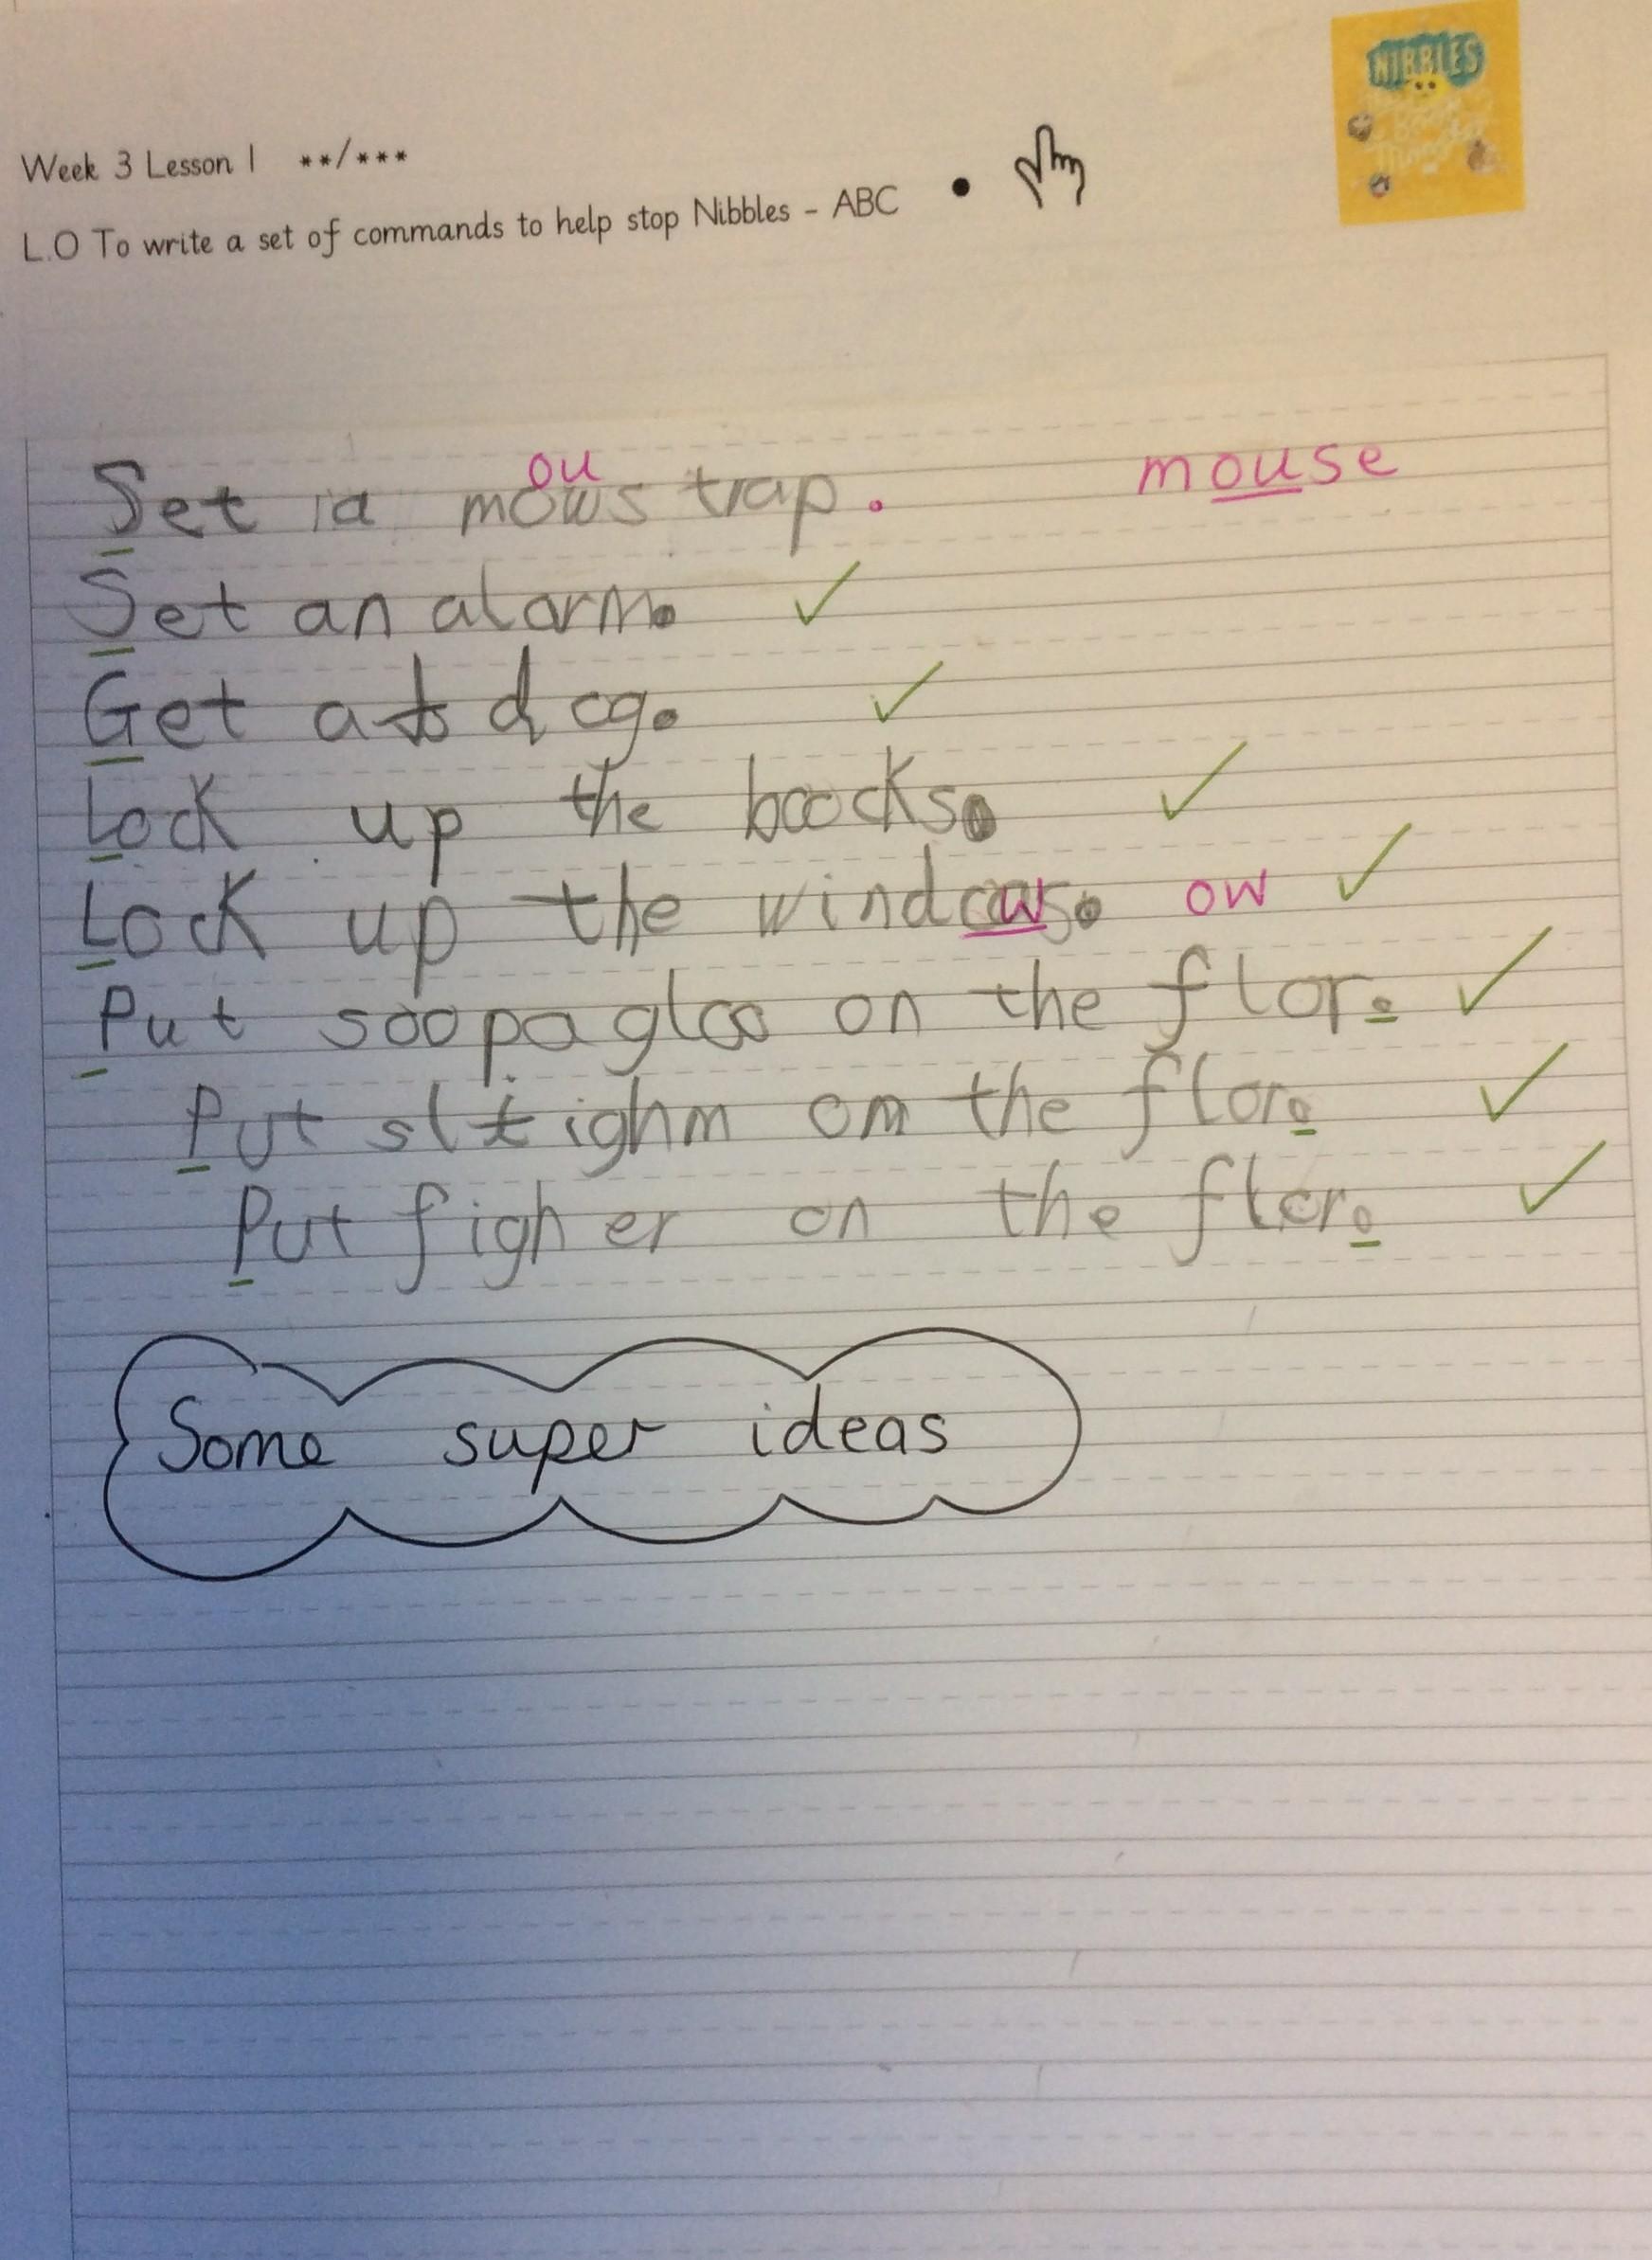 NIBBLES
Week 3 Lesson 1 **/***
L.O To write a set of commands to help stop Nibbles - ABC •
ou
Set a mows trap. mouse
Set an alarm.
Get a dog.
Lock up theboocks.
Lock up the windows. ow
Put soopagloo on the flor.
Put slighm om the flor.
Put figher on the flor.
Some super ideas